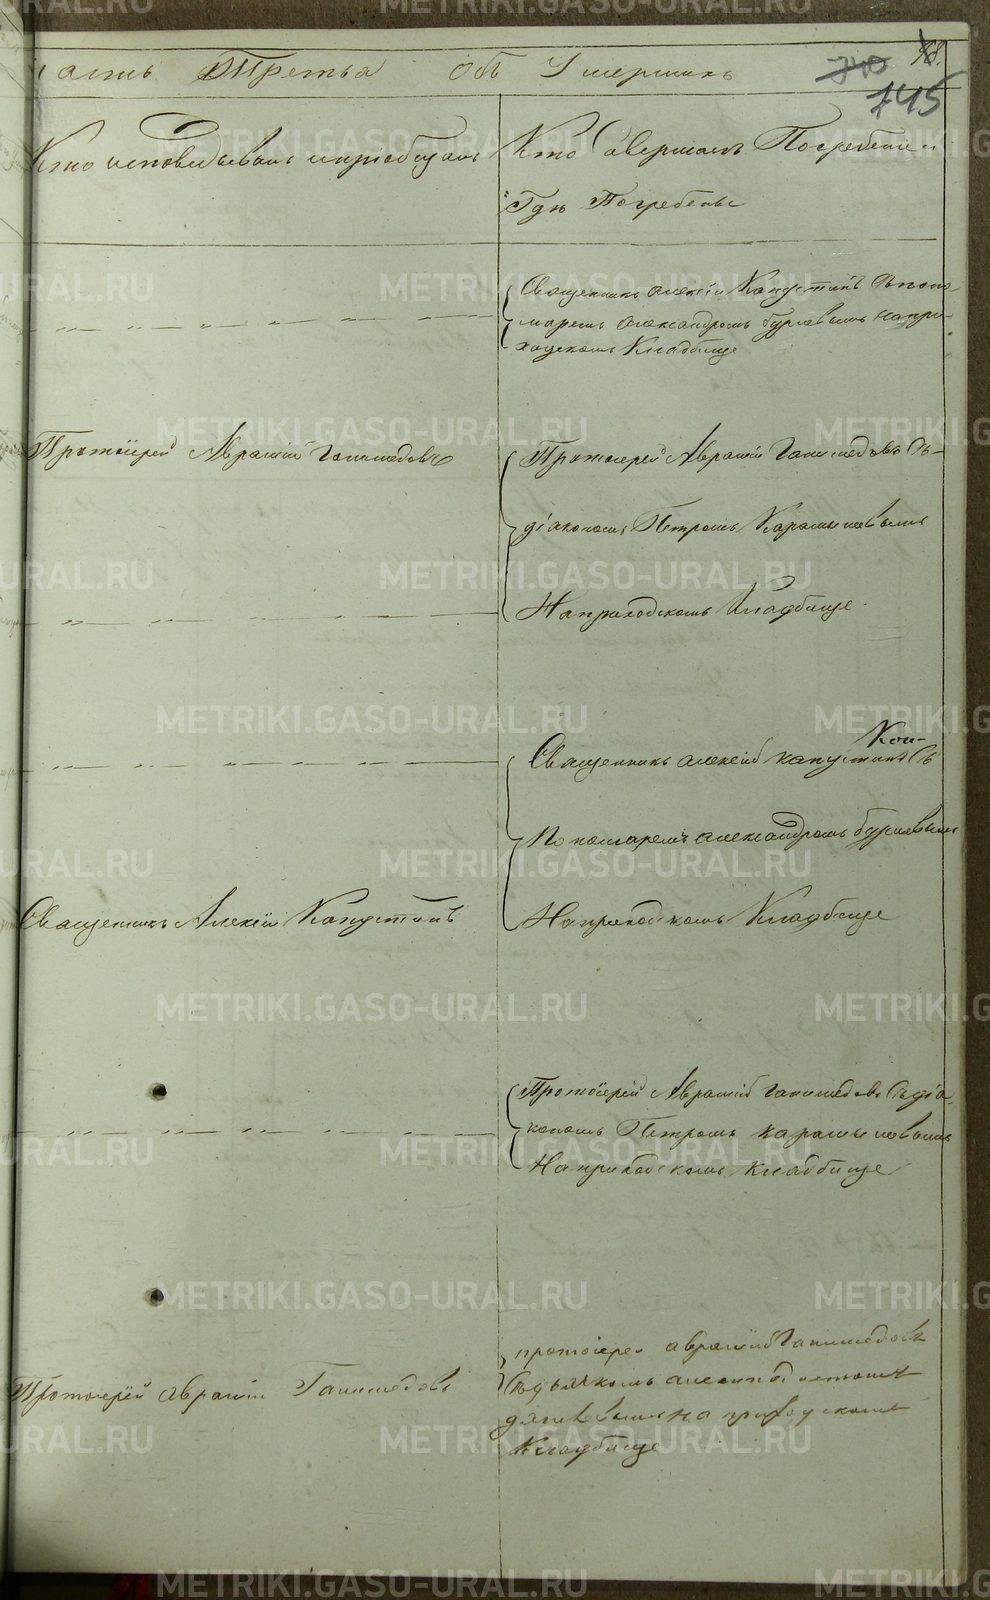 асть Третья объ Умершихъ
740 48.
745
Кто исповедывалъ и приобщалъ
Кто Совершалъ Погребение и
Где Погребены
Священникъ Алексей Капустинъ съ поно-
маремъ Александромъ на при-
ходскомъ Кладбище
Протоiерей Авраамiй Ганимедовъ
Протоиерей Авраамiй Ганимедовъ Съ
дiакономъ Петромъ
На приходскомъ Кладбище
Кон-
Священникъ Алексей Капустинъ Съ
Пономаремъ Александромъ
На приходскомъ Кладбище
Священникъ Алексiй Капустинъ
Протоiерей Авраамiй Ганимедовъ Съ дiа-
кономъ Петромъ
На приходскомъ Кладбище
Протоiерей Авраамiй Ганимедовъ
протоiерей авраамiй Ганимедовъ
на приходскомъ
Кладбище
METRIKI.GASO-URAL.RU